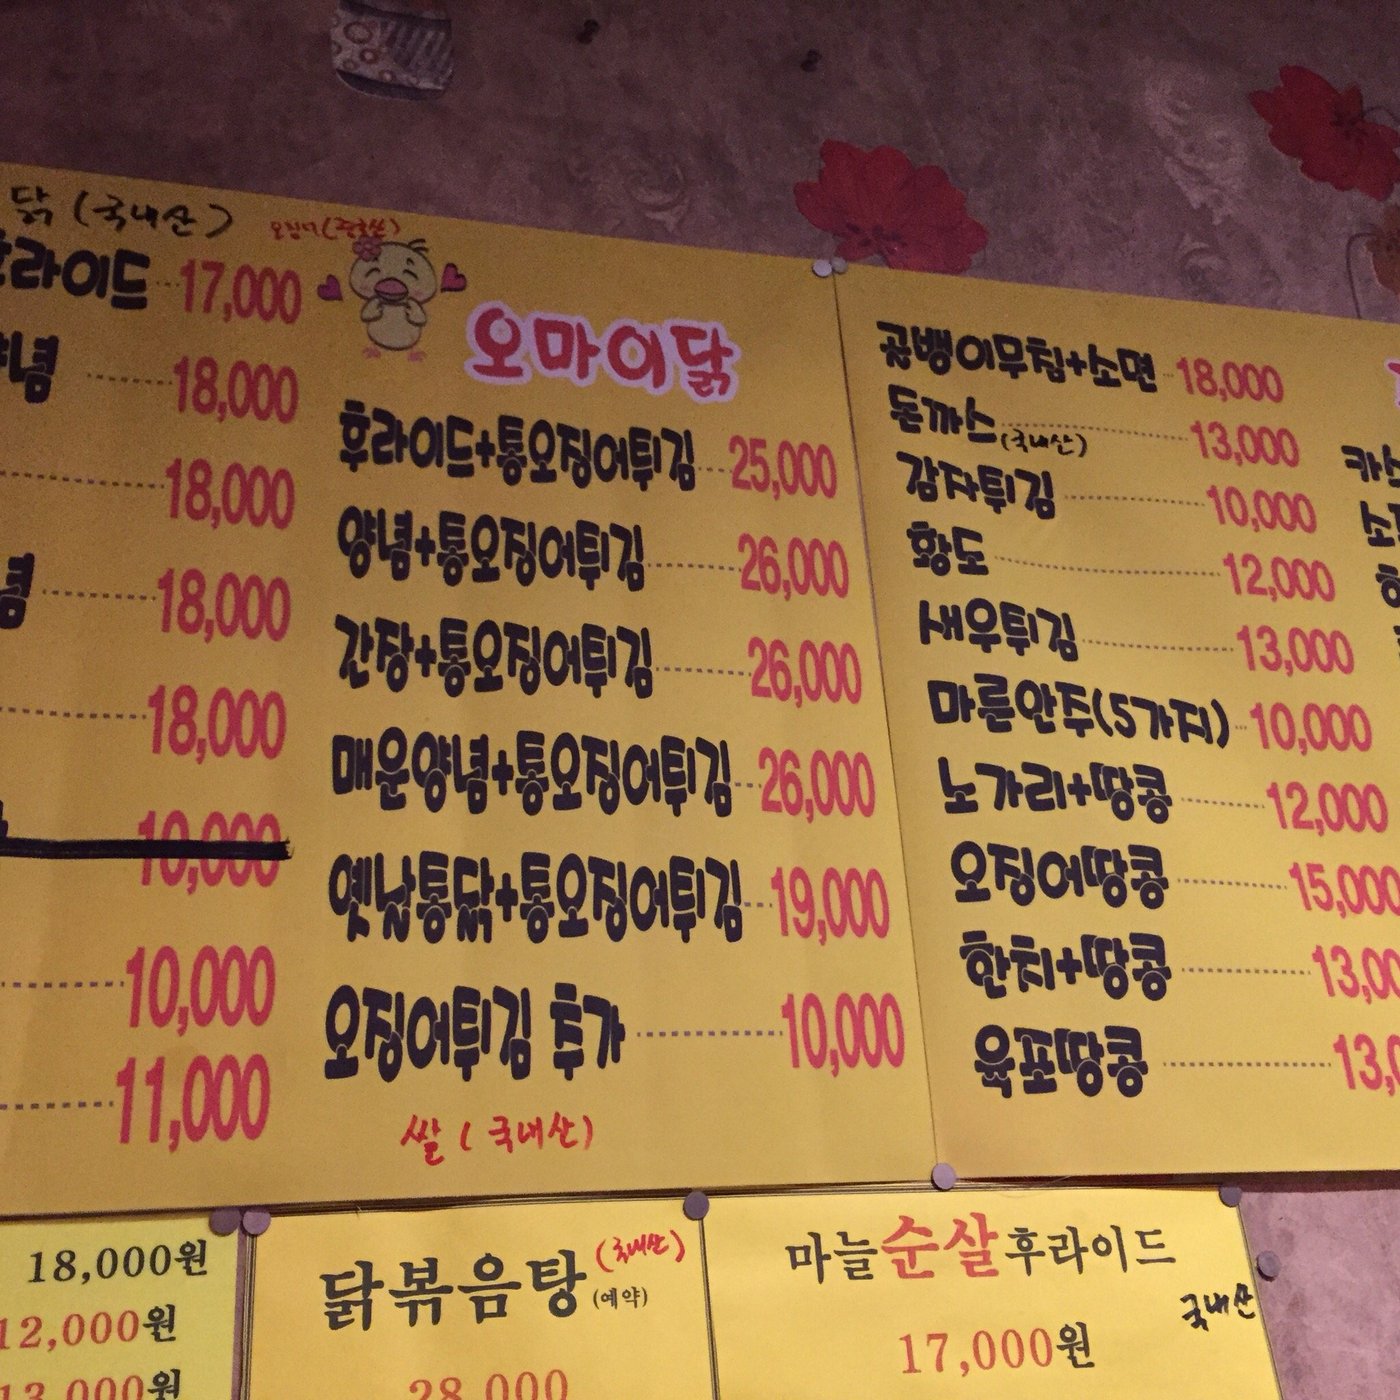 닭 (국내산)
후라이드 17,000
양념 18,000
18,000
18,000
18,000
10,000
10,000
11,000
오마이닭
후라이드+통오징어튀김 25,000
양념+통오징어튀김 26,000
간장+통오징어튀김 26,000
매운양념+통오징어튀김 26,000
옛날통닭+통오징어튀김 19,000
오징어튀김 추가 10,000
쌀 (국내산)
골뱅이무침+소면 18,000
돈까스 (국내산) 13,000
감자튀김 10,000
황도 12,000
새우튀김 13,000
마른안주(5가지) 10,000
노가리+땅콩 12,000
오징어땅콩 15,000
한치+땅콩 13,00
육포땅콩 13,0
18,000원
12,000원
13,000원
닭볶음탕 (국내산)
(예약)
28,000
마늘순살후라이드
국내산
17,000원